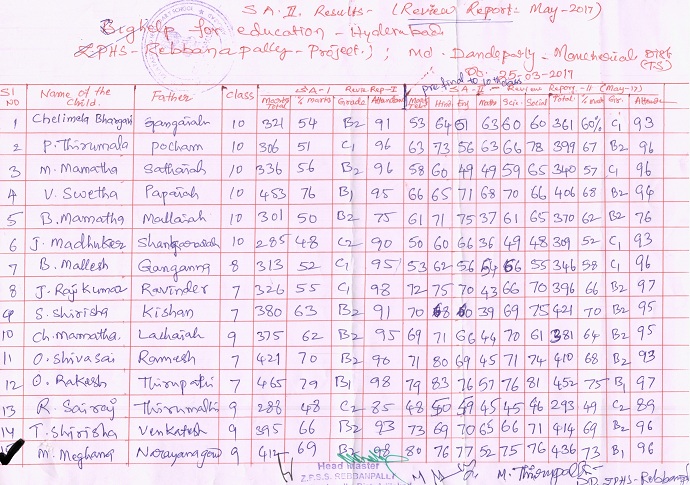 S.A-II. Results- (Review Report- May-2017)
Bighelp for education - Hyderabad.
ZPHS-Rebbanapally-Project.); Md. Dandepally-Mancherial Dist (TS)
Dt. 25-03-2017
SA-I Reve Rep-I SA-II- Review Report-II (May-17)
Sl NO Name of the Child. Father Class Marks Total % Marks Grade Attendance Hindi Eng Maths Scie Social Total % Mark Gr. Attend
1 Chelimela Bhargavi Gangaiah 10 321 54 B2 91 53 64 51 63 60 60 361 60% C1 93
2 P. Thirumala Pocham 10 306 51 C1 96 63 73 56 63 66 78 399 67 B2 96
3 M. Mamatha Sathaiah 10 336 56 B2 96 58 60 49 49 59 65 340 57 C1 96
4 V. Swetha Papaiah 10 453 76 B1 95 66 65 71 68 70 66 406 68 B2 94
5 B. Mamatha Mallaiah 10 301 50 B2 75 61 71 75 37 61 65 370 62 B2 76
6 J. Madhukar 10 285 48 C2 90 50 60 66 36 49 48 309 52 C1 93
7 B. Mallesh Ganganna 8 313 52 C1 95 53 62 56 54 66 55 346 58 C1 96
8 J. Raj Kumar Ravinder 7 326 55 C1 98 72 75 70 43 66 70 396 66 B2 97
9 S. Shirisha Kishan 7 380 63 B2 91 70 68 60 39 69 75 421 70 B2 95
10 Ch. Mamatha. Lachaiah 9 375 62 B2 95 69 71 66 44 70 61 381 64 B2 95
11 O. Shivasai Ramesh 7 421 70 B2 90 71 80 69 45 71 74 410 68 B2 93
12 O. Rakesh Thirupathi 7 465 79 B1 98 79 83 76 57 76 81 452 75 B1 97
13 R. Sairaj Thirumalli 9 288 48 C2 85 48 60 49 45 45 46 293 49 C2 89
14 T. Shirisha Venkatesh 9 395 66 B2 93 73 69 70 65 66 71 414 69 B2 96
M. Meghana Narayanagoud 9 412 69 B2 98 80 76 77 52 75 76 436 73 B1 96
Head Master
Z.P.S.S. REBBANPALLY
M. Thirupathi
ZPHS-Rebbanapally